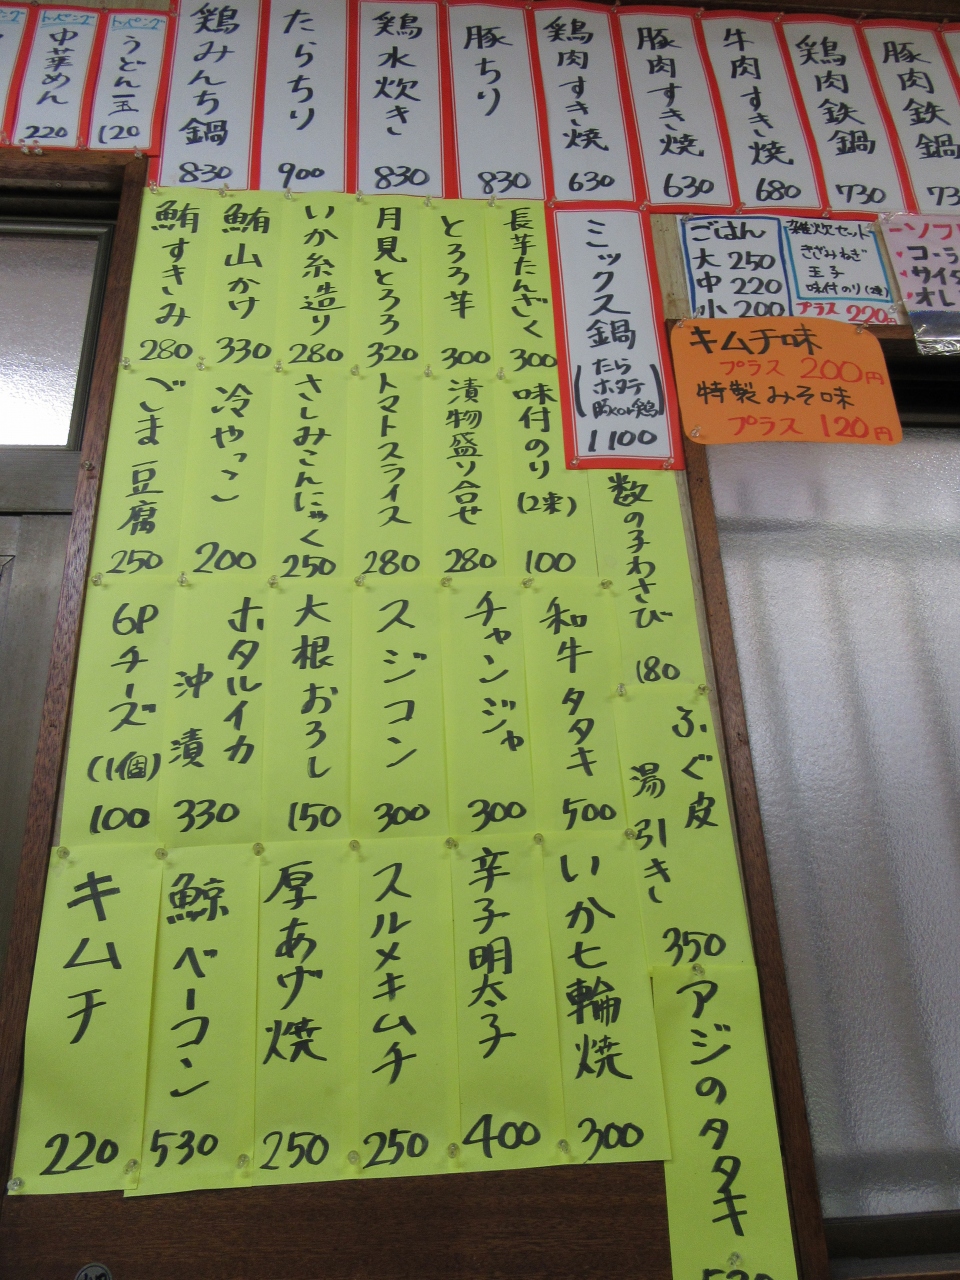 トッピング
中華めん
220
トッピング
うどん玉
120
鶏みんち鍋
830
たらちり
900
鶏水炊き
830
豚ちり
830
鶏肉すき焼
630
豚肉すき焼
630
牛肉すき焼
680
鶏肉鉄鍋
730
豚肉鉄鍋
鮪すきみ
280
鮪山かけ
330
いか糸造り
280
月見とろろ
320
とろろ芋
300
長芋たんざく
300
ミックス鍋
たら
ホタテ
豚or鶏
1100
ごはん
大 250
中 220
小 200
雑炊セット
きざみねぎ
玉子
味付のり(2束)
プラス 220円
キムチ味
プラス 200円
特製みそ味
プラス 120円
ごま豆腐
250
冷やっこ
200
さしみこんにゃく
250
トマトスライス
280
漬物盛り合せ
280
味付のり
(2束)
100
数の子わさび
180
6Pチーズ
(1個)
100
ホタルイカ
沖漬
330
大根おろし
150
スジコン
300
チャンジャ
300
和牛タタキ
500
ふぐ皮
湯引き
350
キムチ
220
鯨ベーコン
530
厚あげ焼
250
スルメキムチ
250
辛子明太子
400
いか七輪焼
300
アジのタタキ